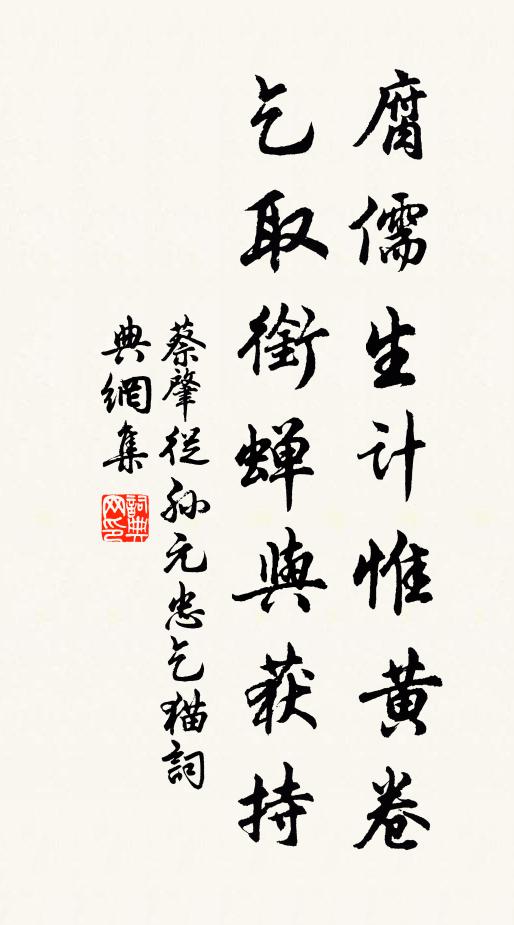 腐儒生计惟黄卷
乞取銜蝉與获持
蔡肇從孙元忠乞猫詞
典網集
詞典網印